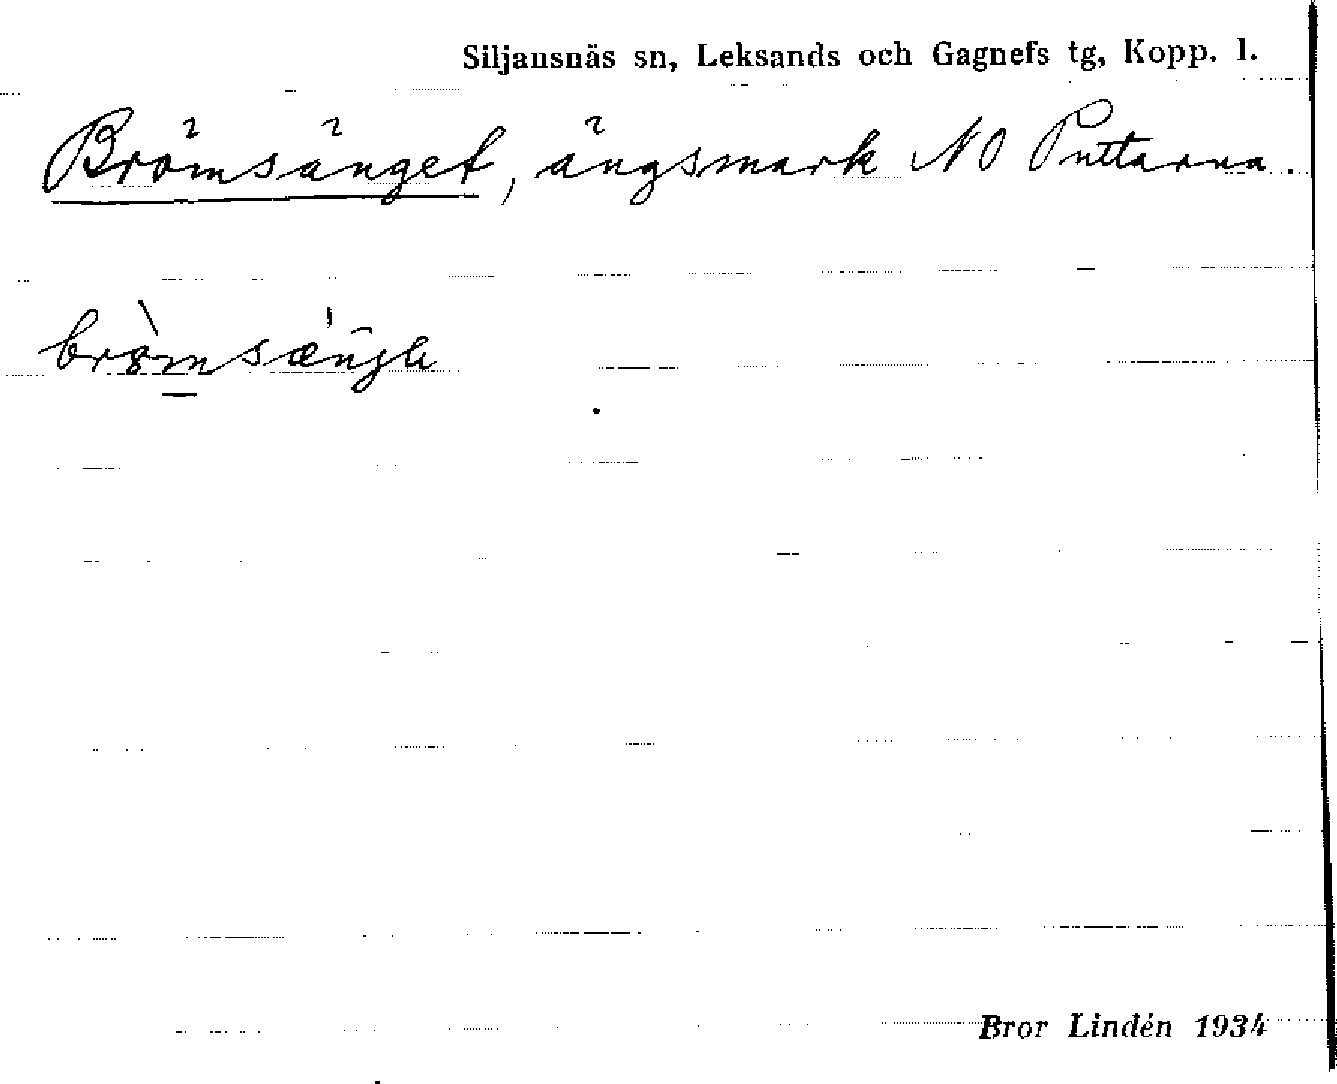 Siljansnäs sn, Leksands och Gagnefs tg, Kopp. l.
Brömsänget, ängsmark NO Puttarna.
Bror Lindén 1934